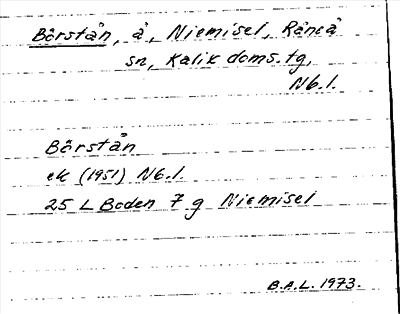 Bårstån, å, Niemisel, Råneå
sn, Kalix doms.tg,
Nb.l.
Bårstån
ek (1951) Nb.l.
25 L Boden 7 g Niemisel
B.A.L. 1973.